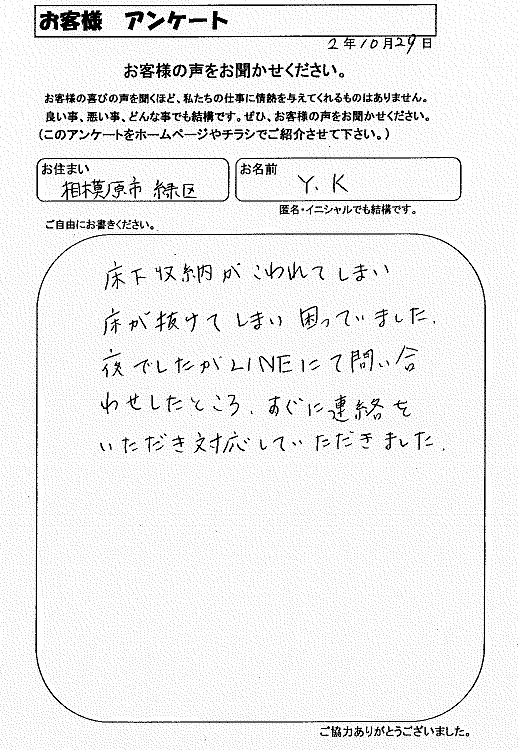 お客様 アンケート
2年10月29日
お客様の声をお聞かせください。
お客様の喜びの声を聞くほど、私たちの仕事に情熱を与えてくれるものはありません。
良い事、悪い事、どんな事でも結構です。ぜひ、お客様の声をお聞かせください。
(このアンケートをホームページやチラシでご紹介させて下さい。)
お住まい
相模原市 緑区
お名前
Y.K
匿名・イニシャルでも結構です。
ご自由にお書きください。
床下収納がこわれてしまい
床が抜けてしまい困っていました.
夜でしたがLINEにて問い合
わせしたところ、すぐに連絡を
いただき対応していただきました.
ご協力ありがとうございました。